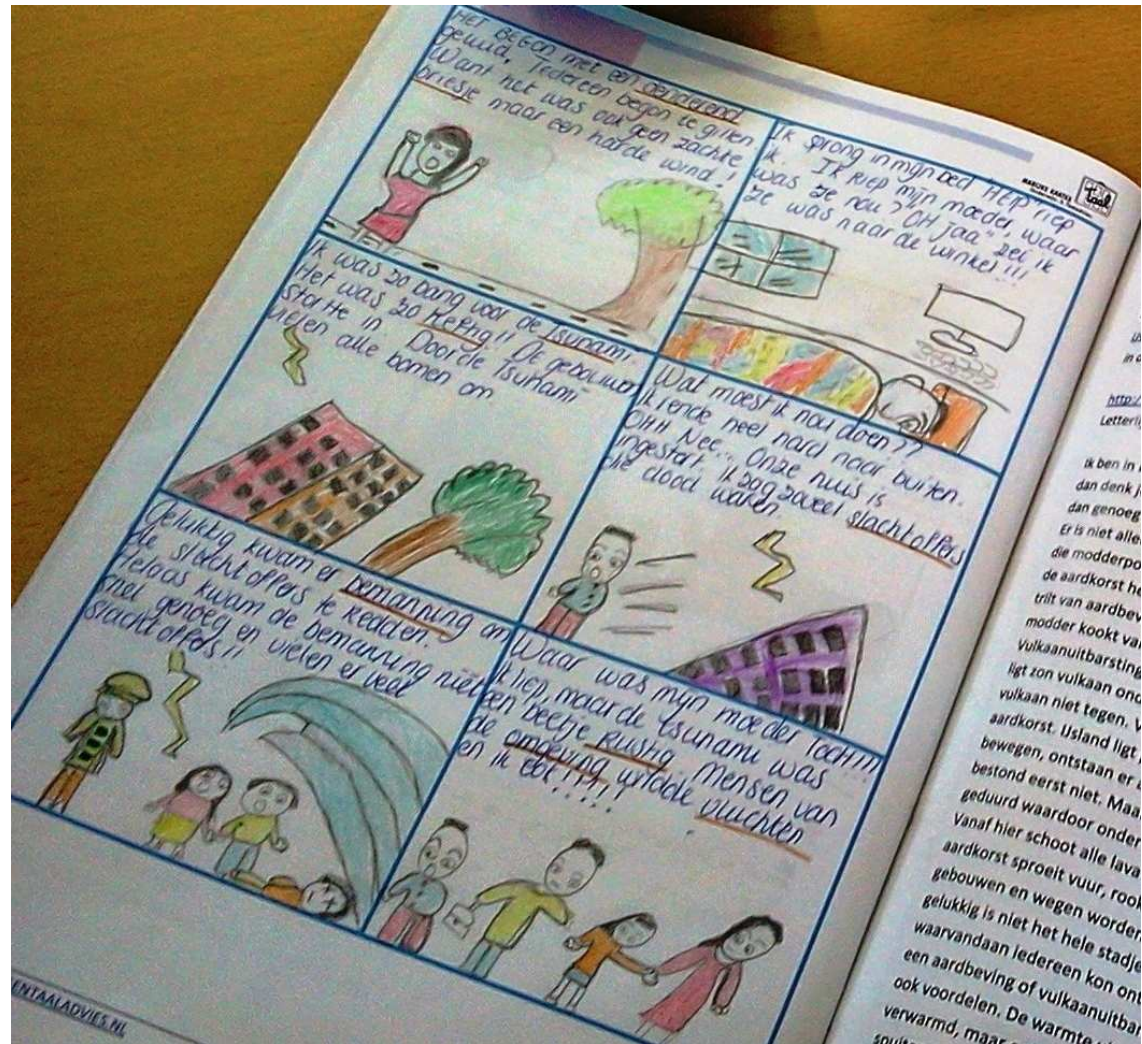 HET BEGON met een denderend
geluid, Iedereen begon te gillen
Want het was ook geen zachte
briesje maar een harde wind!!
Ik sprong in mijn bed HELP riep
ik. Ik RIEP mijn moeder, waar
was ze nou? OH jaa" zei ik
ze was naar de winkel!!!
Ik was zo bang voor de Tsunami.
Het was zo heftig!! De gebouwen
stortte in. Door de Tsunami
vielen alle bomen om
Wat moest ik nou doen??
Ik rende heel hard naar buiten.
OHH Nee... Onze huis is
ingestort. Ik zag zoveel slachtoffers
die dood waren
Gelukkig kwam er bemanning om
de slachtoffers te redden.
Helaas kwam de bemanning niet
snel genoeg en vielen er veel
slachtoffers!!
Waar was mijn moeder toch!!!
Ik liep, maar de tsunami was
een beetje Rustig. Mensen van
de omgeving wilde vluchten
en ik ook!!!!!
MARIJKE KAATEE
taal
ENTAALADVIES.NL
in
http:/
Letterlij
Ik ben in
dan denk j
dan genoeg
Er is niet alle
die modderpo
de aardkorst he
trilt van aardbev
modder kookt van
Vulkaanuitbarsting
ligt zon vulkaan ond
vulkaan niet tegen. V
aardkorst. IJsland ligt
bewegen, ontstaan er
bestond eerst niet. Maa
geduurd waardoor onder
Vanaf hier schoot alle lava
aardkorst sproeit vuur, rook
gebouwen en wegen worden
gelukkig is niet het hele stadje
waarvandaan iedereen kon ont
een aardbeving of vulkaanuitbar
ook voordelen. De warmte
verwarmd, maar
spuite